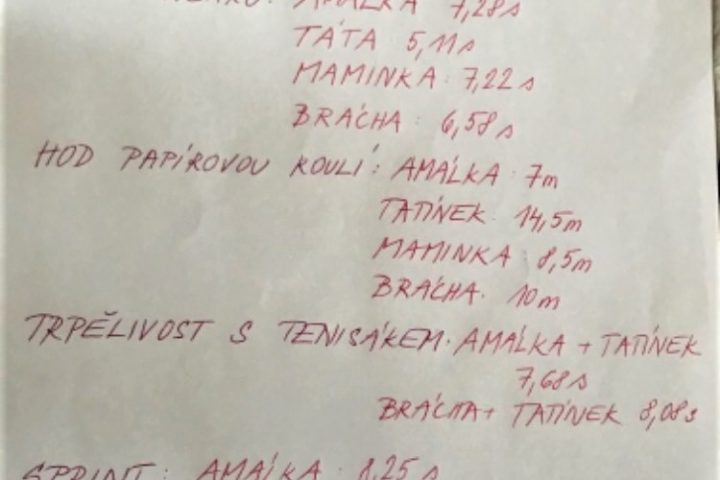 AMÁLKA 7,28s
TÁTA 5,11s
MAMINKA: 7,22s
BRÁCHA: 6,58s
HOD PAPÍROVOU KOULÍ: AMÁLKA 7m
TATÍNEK 14,5m
MAMINKA 8,5m
BRÁCHA. 10m
TRPĚLIVOST S TENISÁKEM. AMÁLKA + TATÍNEK
7,68s
BRÁCHA + TATÍNEK 8,08s
SPRINT: AMÁLKA: 8,25s